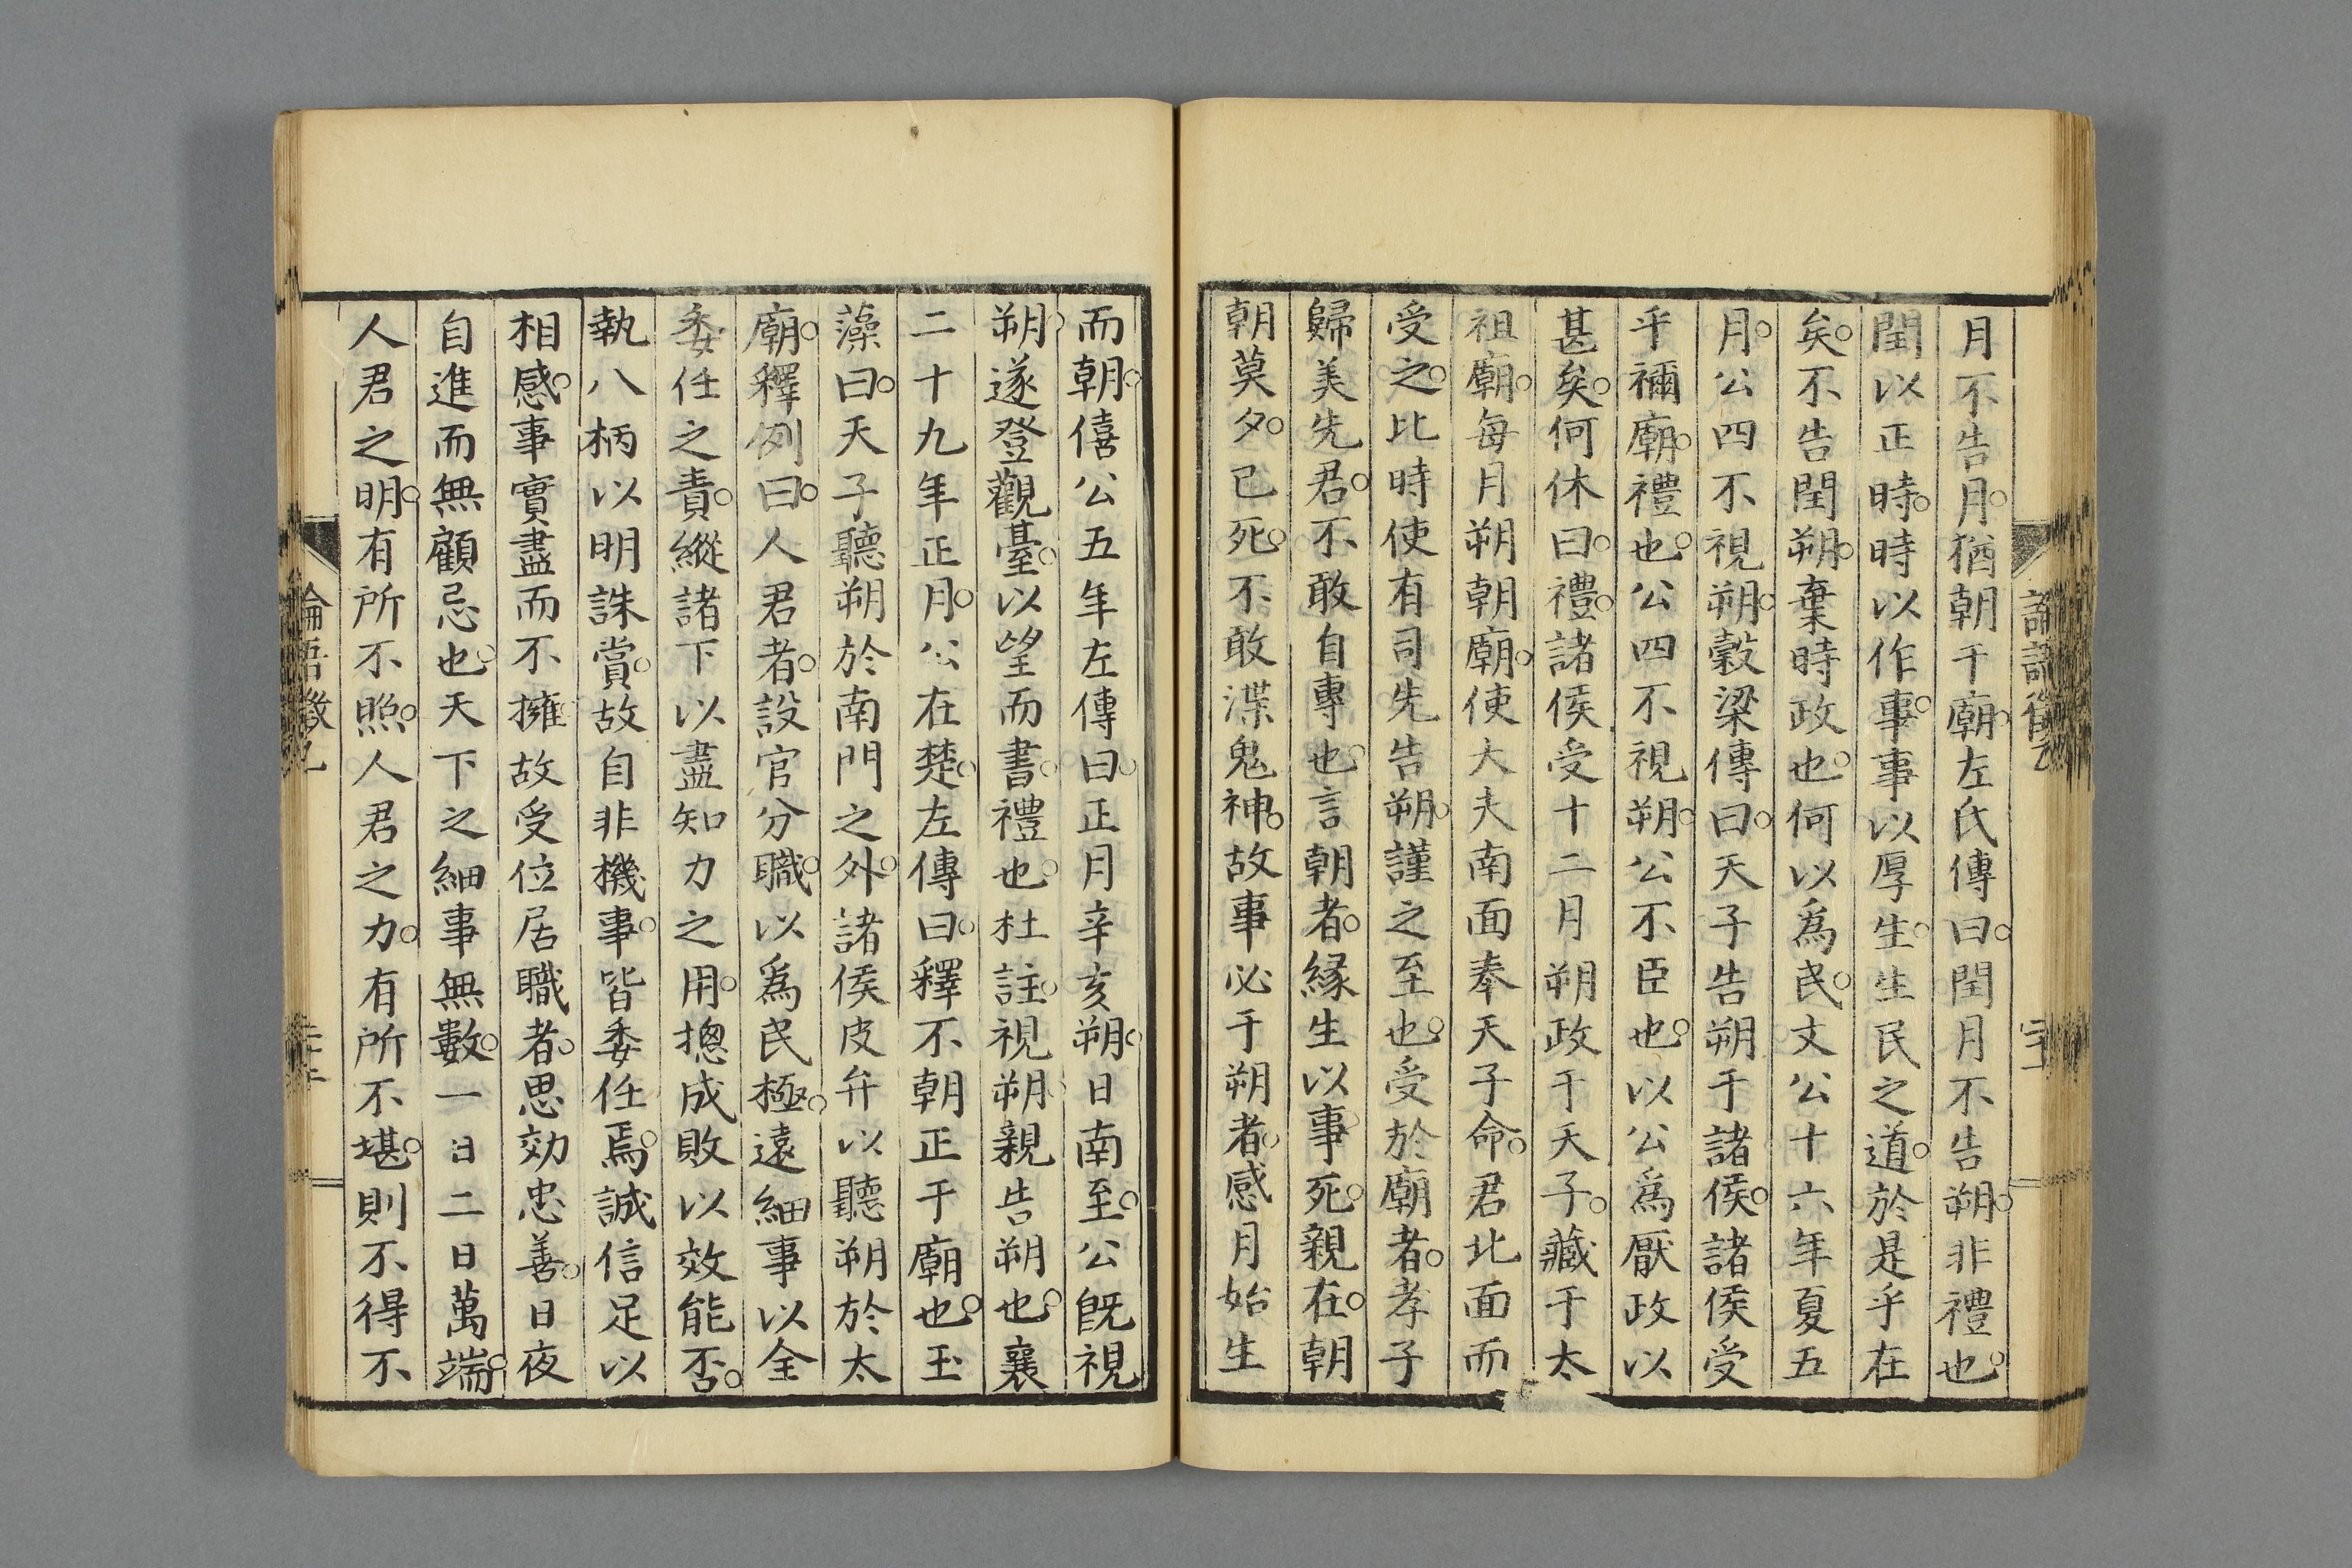 月不告月。猶朝于廟。左氏傳曰。閏月不告朔。非禮也。
閏以正時。時以作事。事以厚生。生民之道。於是乎在
矣。不告閏朔。棄時政也。何以爲民。文公十六年夏五
月。公四不視朔。穀梁傳曰。天子告朔于諸侯。諸侯受
乎禰廟。禮也。公四不視朔。公不臣也。以公爲厭政以
甚矣。何休曰。禮。諸侯受十二月朔政于天子。藏于太
祖廟。每月朔朝廟。使大夫南面奉天子命。君北面而
受之。比時使有司先告朔。謹之至也。受於廟者。孝子
歸美先君。不敢自專也。言朝者。緣生以事死。親在。朝
朝莫夕。已死。不敢渫鬼神。故事必于朔者。感月始生
而朝。僖公五年左傳曰。正月辛亥朔。日南至。公既視
朔。遂登觀臺。以望而書。禮也。杜註。視朔親告朔也。襄
二十九年正月。公在楚。左傳曰。釋不朝正于廟也。玉
藻曰。天子聽朔於南門之外。諸侯皮弁以聽朔於太
廟。釋例曰。人君者。設官分職。以爲民極。遠細事以全
委任之責。縱諸下以盡知力之用。摠成敗以效能否。
執八柄以明誅賞。故自非機事。皆委任焉。誠信足以
相感。事實盡而不擁。故受位居職者。思効忠善。日夜
自進而無顧忌也。天下之細事無數。一日二日萬端。
人君之明。有所不照。人君之力。有所不堪。則不得不